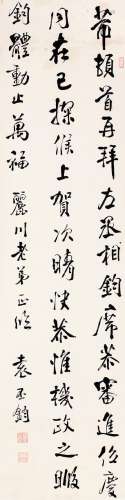 芾頓首再拜左丞相鈞席恭審進位慶
同在己探候上賀次晴快恭惟機政之暇
鈞體動止萬福 麗川老弟正臨 袁丕鈞